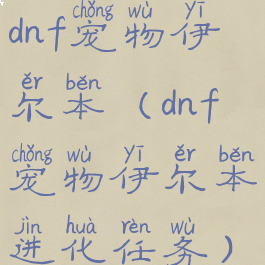 chǒng wù yī
dnf宠物伊
ěr běn
尔本（dnf
chǒng wù yī ěr běn
宠物伊尔本
jìn huà rèn wù
进化任务）